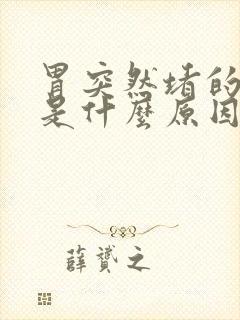 胃突然堵的
是什麼原因
薛贇之